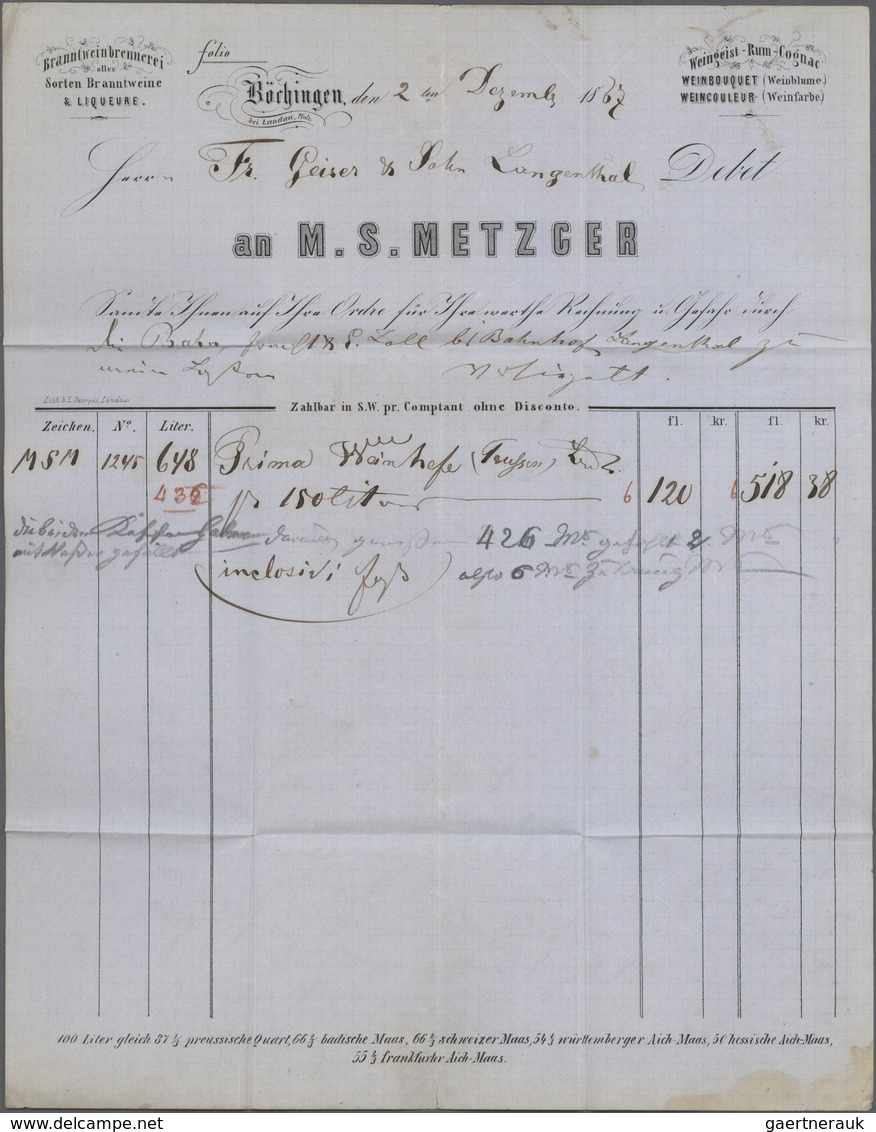 Branntweinbrennerei
aller
Sorten Branntweine
& LIQUEURE.
folio
Böchingen, den 2ten Dezembr 1867
bei Landau, Pfalz.
Weingeist-Rum-Cognac
WEINBOUQUET (Weinblume)
WEINCOULEUR (Weinfarbe)
Herrn Fr. Geiser & Sohn Langenthal Debet
an M. S. METZGER
Sandte Ihnen auf Ihre Ordre für Ihre werthe Rechnung u. Gefahr durch
die Bahn, Zoll bei Bahnhof Langenthal zu
Lith. b. L. Georges, Landau
Zahlbar in S.W. pr. Comptant ohne Disconto.
Zeichen. No. Liter. fl. kr. fl. kr.
MSM 1245 648 Prima Weinhefe (Trusen)
432 pr 150 Liter 6 120 6 518 38
die beiden haben 426 Ms
mit gefüllt
inclosivi Faß also 6 Ms zu wenig
100 Liter gleich 87 1/3 preussische Quart, 66 2/3 badische Maas, 66 2/3 schweizer Maas, 54 1/2 württemberger Aich-Maas, 50 hessische Aich-Maas,
55 2/3 frankfurter Aich-Maas.
gaertnerauk